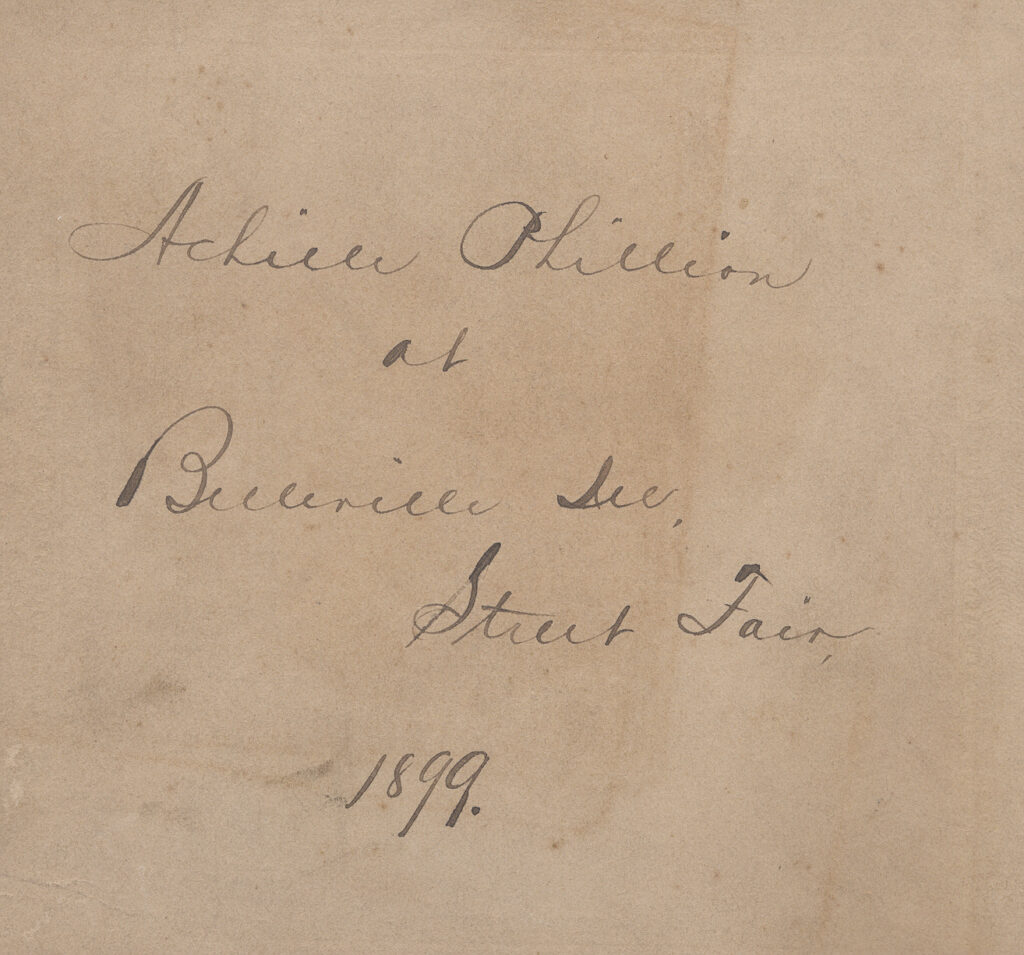 Achille Phillion
at
Belleville Ill,
Street Fair,
1899.